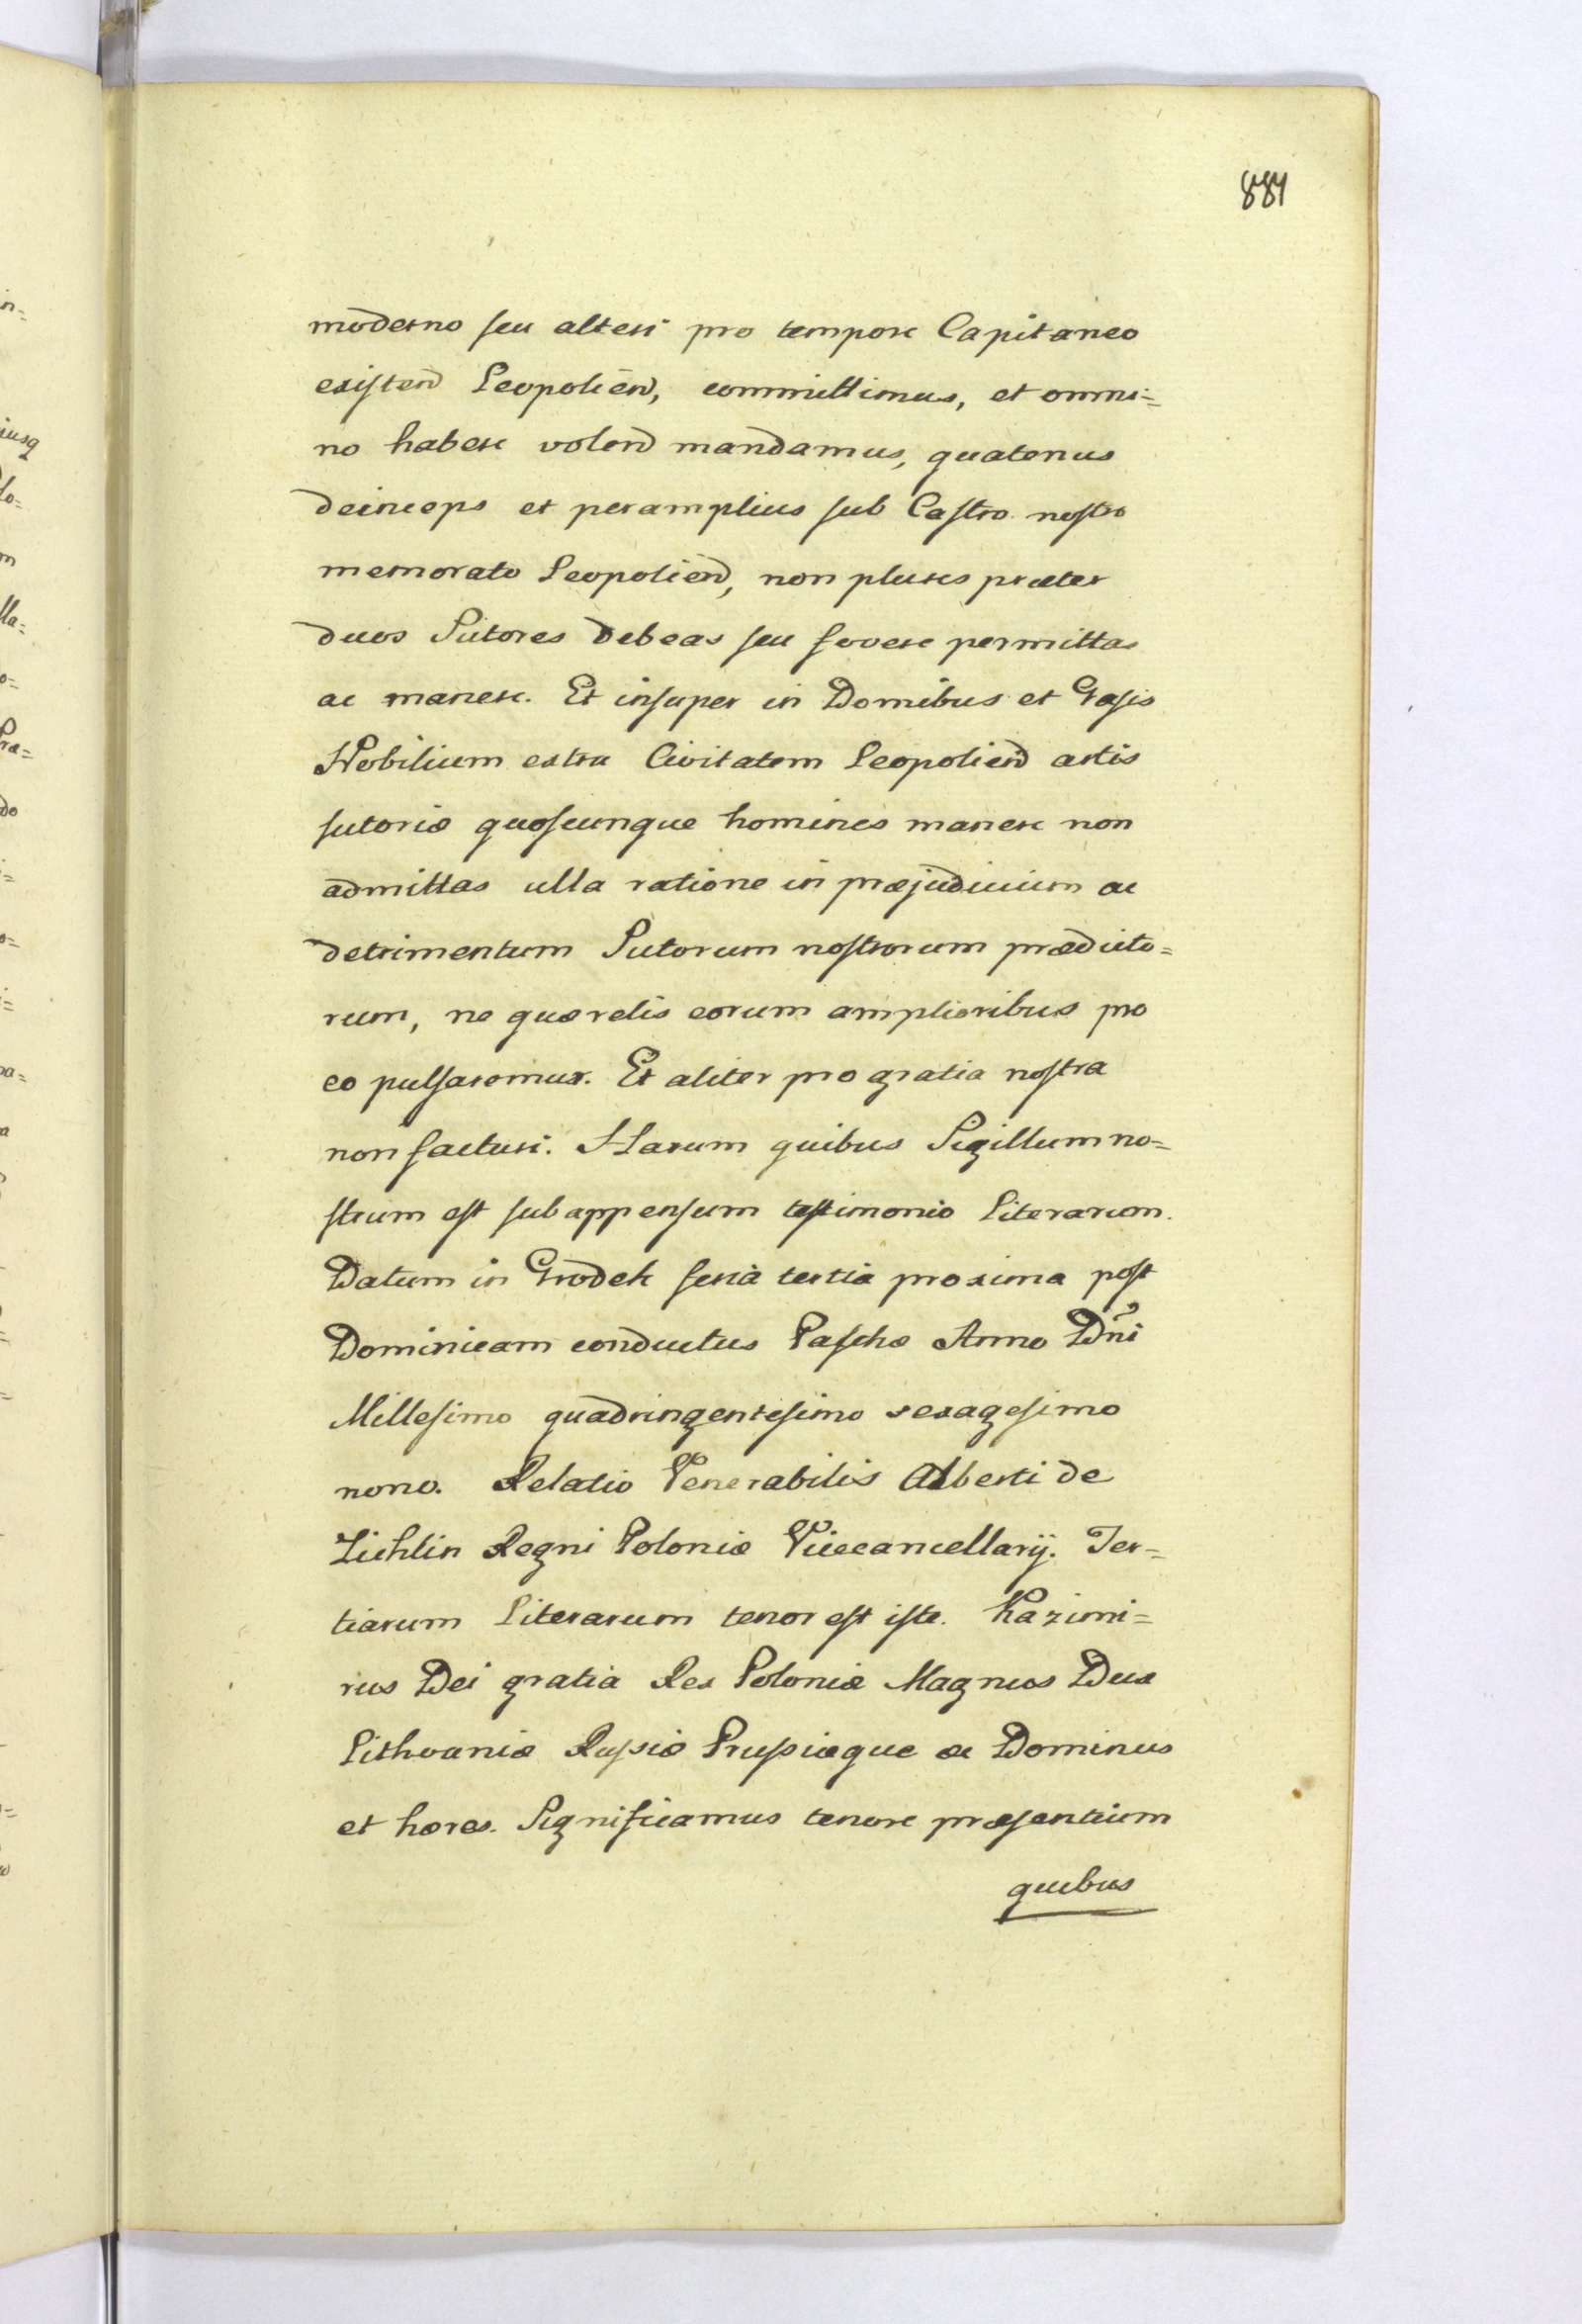 881
moderno seu alteri pro tempore Capitaneo
existend Leopoliend, committimus, et omni=
no habere volend mandamus, quatenus
deinceps et peramplius sub Castro nostro
memorato Leopoliend, non plures præter
duos Sutores debeas seu fovere permittas
ac manere. Et insuper in Domibus et Gasis
Nobilium extra Civitatem Leopoliend artis
sutoriæ quoscunque homines manere non
admittas ulla ratione in præjudicium ac
detrimentum Sutorum nostrorum prædicto=
rum, ne quærelis eorum amplioribus pro
eo pulsaremur. Et aliter pro gratia nostra
non facturi. Harum quibus Sigillum no=
strum est subappensum testimonio Literarum.
Datum in Grodek feria tertia proxima post
Dominicam conductus Paschæ Anno Dñi
Millesimo quadringentesimo sexagesimo
nono. Relatio Venerabilis Alberti de
Zichlin Regni Poloniæ Vicecancellarij. Ter=
tiarum Literarum tenor est iste. Kazimi=
rus Dei gratia Rex Poloniæ Magnus Dux
Lithvaniæ Russiæ Prussiæque ac Dominus
et hæres. Significamus tenore præsentium
quibus